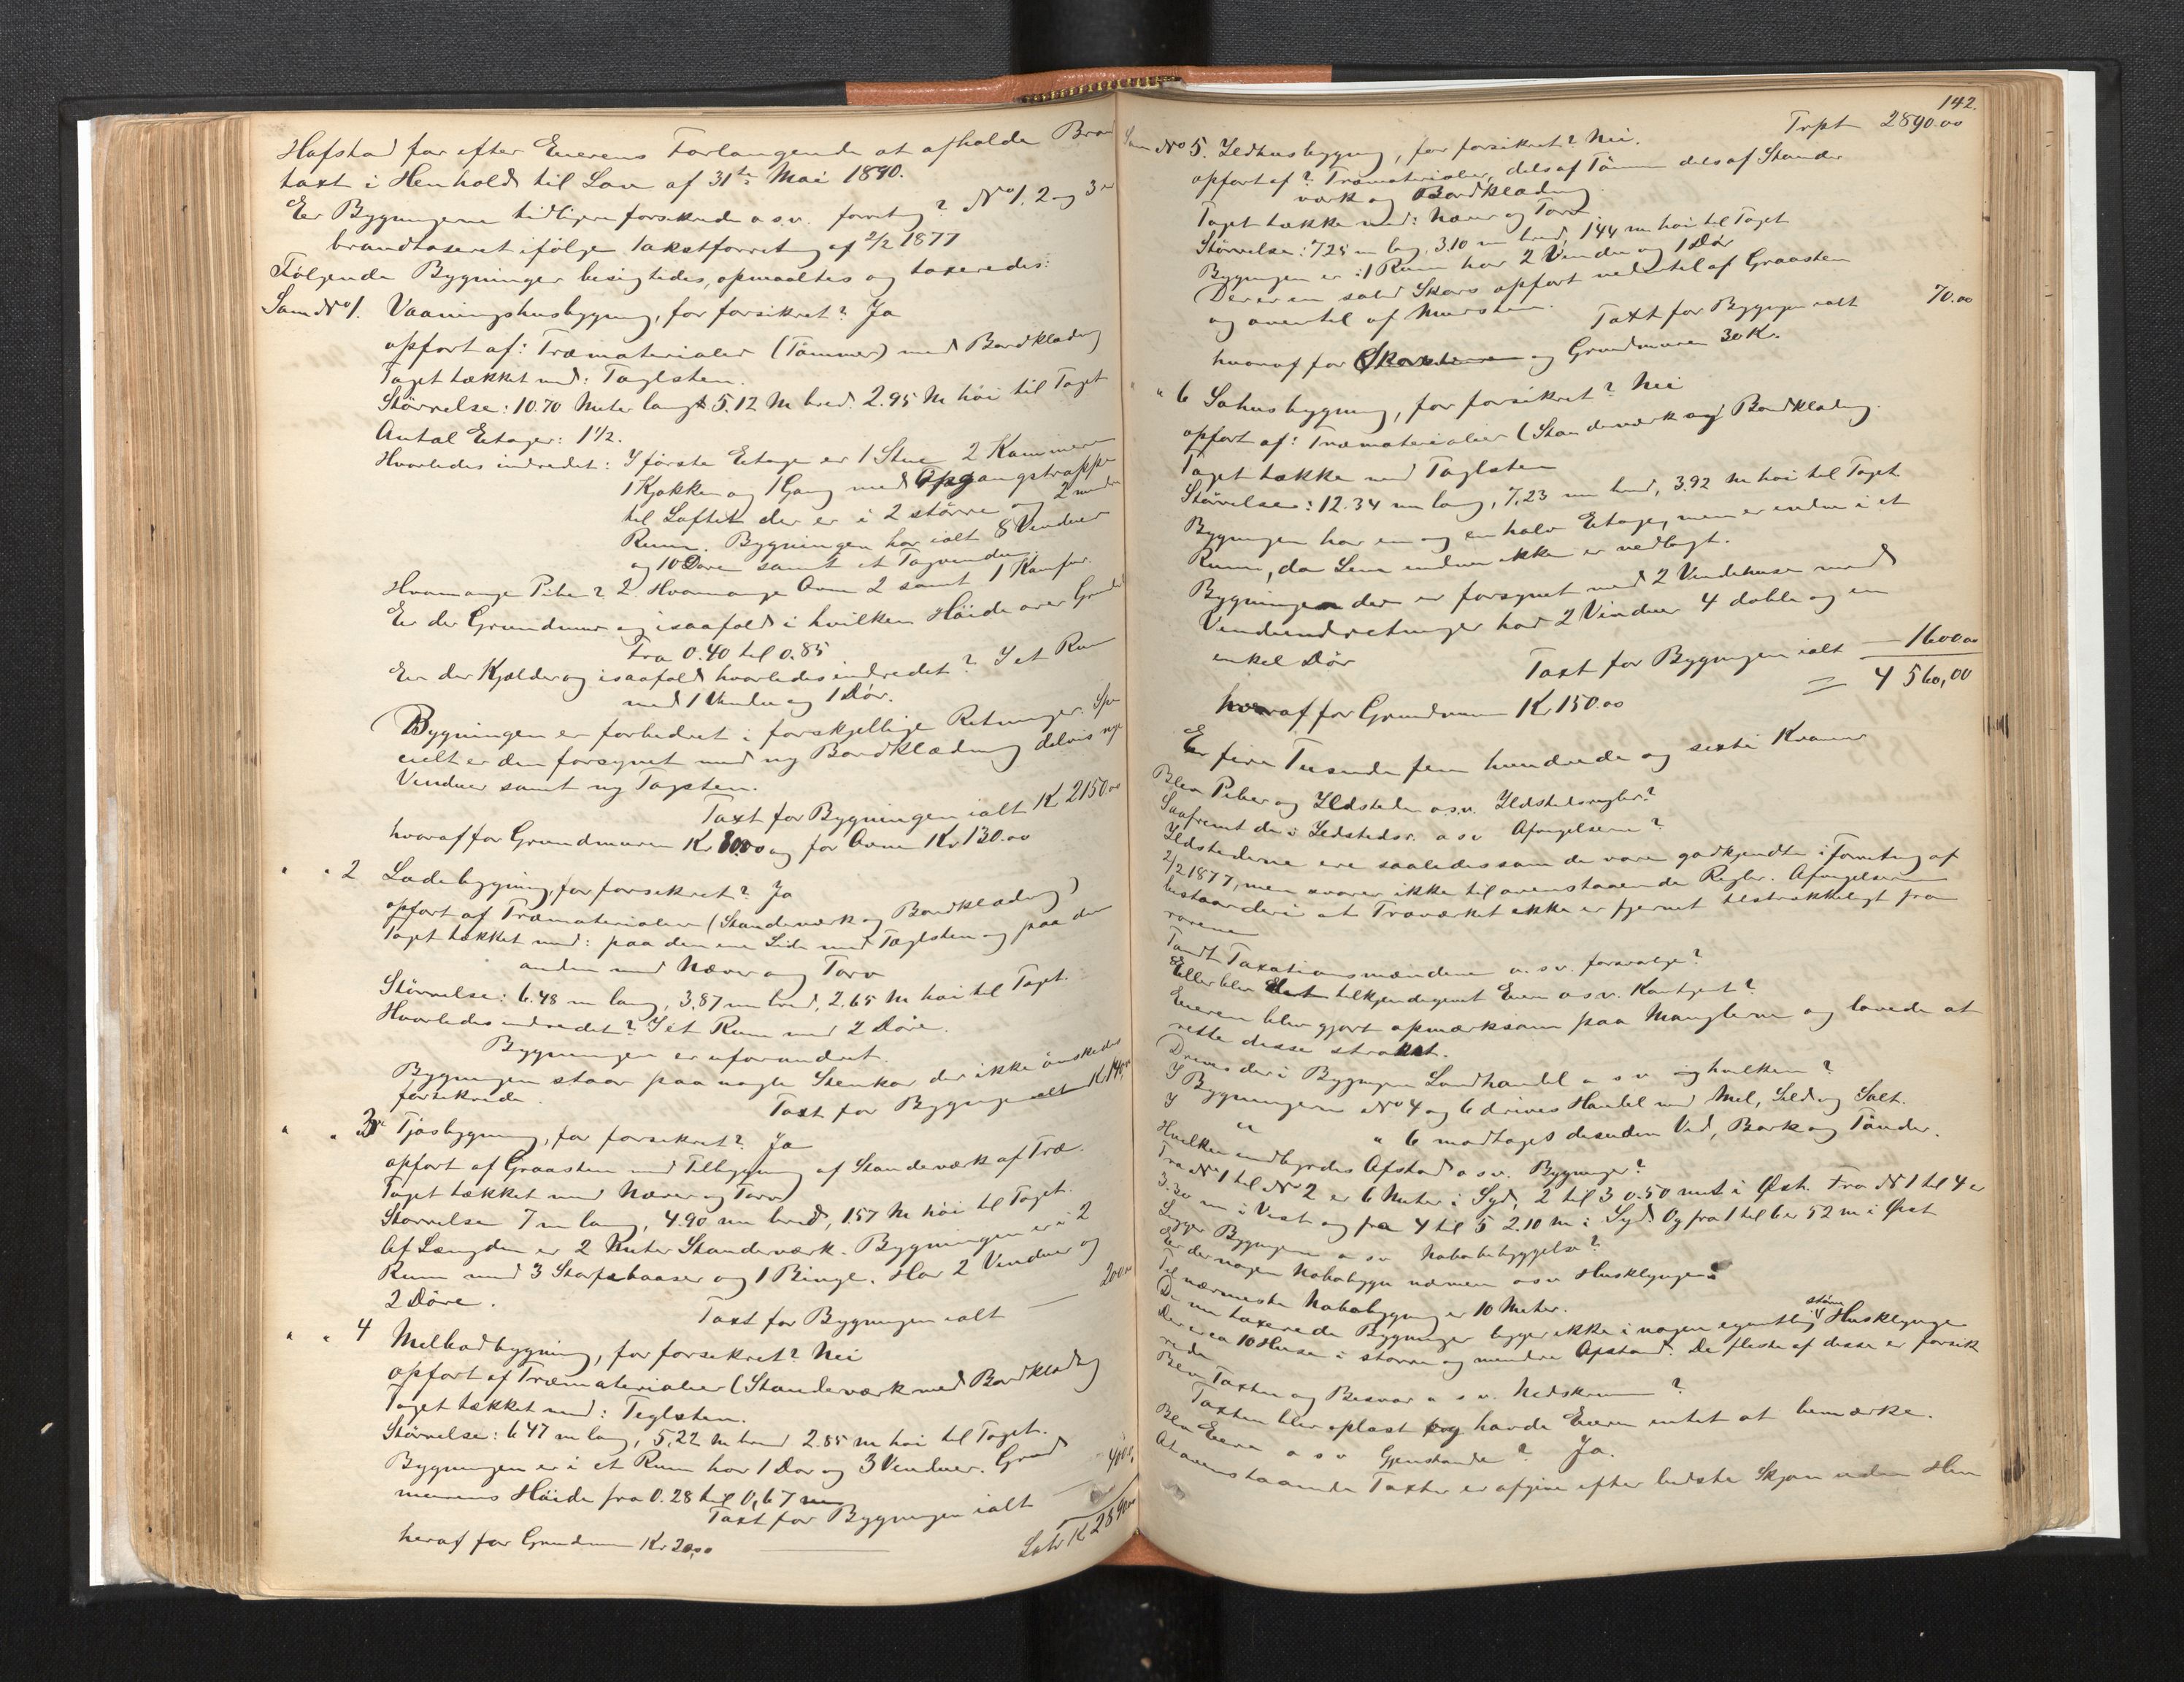 Hafstad for efter Eierens Forlangende at afholde Bran
taxt i Henhold til Lov af 31te Mai 1890.
Er Bygningerne tidligere forsikrede o.s.v. forretng? No 1, 2 og 3 er
brandtaxeret ifølge Takstforretng af 2/2 1877
Følgende Bygninger besigtedes, opmaaltes og taxeredes:
Sam No 1. Vaaningshusbygning, før forsikret? Ja
opført af: Træmaterialer (Tømmer) med Bordklædng
Taget tækket med: Taglsten.
Størrelse: 10.70 Meter lang 5.12 M bred. 2.95 M høi til Taget
Antal Etager: 1 1/2.
Hvorledes indredet: I første Etage er 1 Stue 2 Kammere
1 Kjøkken og 1 Gang med Opgangstrappe
til Loftet der er i 2 større og 2 mindre
Rum. Bygningen har ialt 8 Vinduer
og 10 Døre samt et Tagvindue.
Hvormange Piber? 2. Hvormange Ovne 2 samt 1 Komfur.
Er der Grundmur og isaafald i hvilken Høide over Grund
Fra 0.40 til 0.85
Er der Kjælder og isaafald hvorledes indredet? I et Rum
med 1 Vindu og 1 Dør.
Bygningen er forbedret i forskjellige Retninger. Spe
cielt er den forsynet med ny Bordklædning delvis nye
Vinduer samt ny Tagsten.
Taxt for Bygningen ialt K 2150.00
hvoraf for Grundmuren Kr 80.00 og for Ovne Kr 130.00
" " 2 Ladebygning, før forsikret? Ja
opført af Træmaterialier (Standeværk og Bordklædng)
Taget tækket med: paa den ene Side med Taglsten og paa den
anden med Næver og Torv
Størrelse: 6.48 m lang, 3,87 m bred, 2,65 M høi til Taget.
Hvorledes indredet? I et Rum med 2 Døre.
Bygningen er uforandret.
Bygningen staar paa nogle Stenkar der ikke ønskedes
forsikrede. Taxt for Bygnge ialt K 140,00
" " 3 Fjøsbygning, før forsikret? Ja
opført af Graasten med Tilbygning af Standeværk af Træ.
Taget tækket med Næver og Torv
Størrelse 7 m lang, 4.90 m bred, 1.57 M høi til Taget.
Af Længden er 2 Meter Standeværk. Bygningen er i 2
Rum med 3 Storfebaaser og 1 Binge. Har 2 Vinduer og
2 Døre. Taxt for Bygningen ialt — 200.00
" " 4 Melbodbygning, før forsikret? Nei
opført af Træmaterialier (Standeværk med Bordklædng
Taget tækket med: Teglsten.
Størrelse: 6 47 m lang, 5,22 M bred 2.85 m høi til Taget.
Bygningen er i et Rum har 1 Dør og 3 Vinduer. Grund
murens Høide fra 0.28 til 0,67 m
Taxt for Bygningen ialt — 400.00
heraf for Grundmur Kr 20,00
Lats K 2890.00
142.
Trpt 2890.00
Sam No 5. Ildhusbygning, før forsikret? Nei.
opført af? Træmaterialier, dels af Tømmer dels af Stander
værk og Bordklædning.
Taget tække med: Næver og Torv
Størrelse: 725 m lang, 3.10 m bred, 1.44 m høi til Taget
Bygningen er i 1 Rum har 2 Vinduer og 1 Dør
Der er en solid Skors opført nedentil af Graasten
og oventil af Mursten. Taxt for Bygngen ialt 70.00
hvoraf for Skorstenen og Grundmuren 30 Kr.
" 6 Søhusbygning, før forsikret? Nei
opført af: Træmaterialier (Standeværk og Bordklædng.
Taget tække med Taglsten
Størrelse: 12.34 m lang, 7,23 m bred, 3.92 M høi til Taget.
Bygningen har en og en halv Etage, men er endnu i et
Rum, da Lem endnu ikke er vedlagt.
Bygningen der er forsynet med 2 Vindehuse med
Vindeindretninger har 2 Vinduer 4 doble og en
enkel Dør Taxt for Bygningen ialt — 1600.00
= 4 560,00
hvoraf for Grundmuren Kr 150.00
Er fire Tusinde fem hundrede og sexti Kroner
Blev Piber og Ildsteder o.s.v. Ildstedsregler?
Saafremt de i Ildstedsr. o s v Afvigelserne?
Ildstederne ere saaledes som de varer godkjendte i Forretng af
2/2 1877, men svarer ikke til ovenstaaende Regler. Afvigelserne
bestaar deri at Træværket ikke er fjernet tilstrækkeligt fra
rørene
Fandt Taxationsmændene o. s. v. forsvarlige?
Eller blev det tilkjendegivet Eieren o s v. Kontijent?
Eieren blev gjort opmærksom paa Manglerne og lovede at
rette disse strakst.
Drives der i Bygngen Landhandel o s v og hvilken?
I Bygningerne No 4 og 6 drives Handel med Mel, Sild og Salt.
I " " 6 modtages desuden Ved, Bark og Tønder.
Hvilken indbyrdes Afstand o s v. Bygninger?
Fra No 1 til No 2 er 6 Meter i Syd, 2 til 3 0.50 met i Øst. Fra No 1 til 4 er
3.30 m i Vest og fra 4 til 5 2.10 M i Syd. Og fra 1 til 6 er 52 m i Øst
Ligger Bygngerne o s v Nabobebyggelse?
Er der nogen Nabobygn nærmere o s v Husklynge?
Til nærmeste Nabobygng er 10 Meter.
De nu taxerede Bygninger ligger ikke i nogen egentlig større Husklynge
Der er ca 10 Huse i større og mindre Afstand. De fleste af disse er forsik
rede
Blev Taxten og Besvar o s v. Nedskreven?
Taxten blev oplæst og havde Eieren intet at bemærke.
Blev Eieren o s v Gjenstande? Ja.
At ovenstaaende Taxter er afgivne efter bedste Skjøn uden Hen